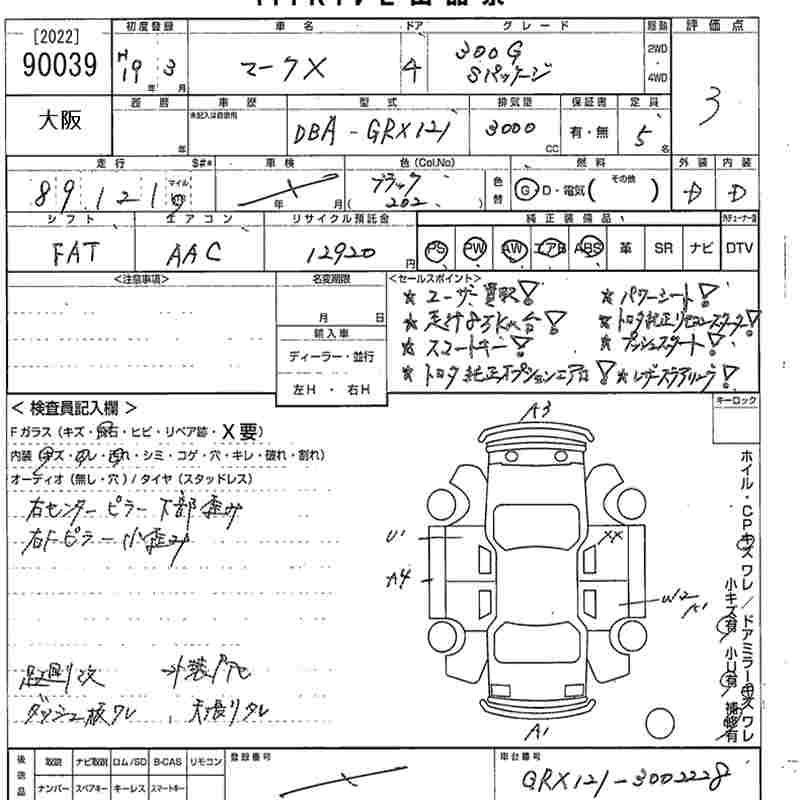 [2022]
90039
初度登録
H19年3月
車名
マークX
ドア
4
グレード
300G
Sパッケージ
駆動
2WD
・
4WD
評価点
3
大阪
車歴
未記入は自家用
年
型式
DBA-GRX121
排気量
3000
CC
保証書
有・無
定員
5名
走行
S#*
89,121
マイル
車検
年 月
色(Col.No)
ブラック
(202)
色替
燃料
G D・電気( その他 )
外装
内装
D D
シフト
FAT
エアコン
AAC
リサイクル預託金
12920円
純正装備品
PS PW AW エアB ABS 革 SR ナビ DTV
<注意事項>
名変期限
月 日
輸入車
ディーラー・並行
左H・右H
<セールスポイント>
★ユーザー買取! ★パワーシート!
★走行8万km台! ★トヨタ純正リモコンスターター!
★スマートキー! ★プッシュスタート!
★トヨタ純正オプションエアロ! ★レザーステアリング!
キーロック
<検査員記入欄>
Fガラス(キズ・飛石・ヒビ・リペア跡・X要)
内装(キズ・スレ・汚れ・シミ・コゲ・穴・キレ・破れ・割れ)
オーディオ(無し・穴)/タイヤ(スタッドレス)
右センターピラー下部歪み
右Fピラー小歪み
足廻り次 外装凹
ダッシュ板ワレ、天張りタレ
A3
U1
A4
XX
W2
A1
A1
ホイル・CPキズワレ/ドアミラーキズワレ
小キズ有 小U有 補修有
後送品
取説 ナビ取説 ロム/SD B-CAS リモコン
ナンバー スペアキー キーレス スマートキー
登録番号
車台番号
GRX121-3002228